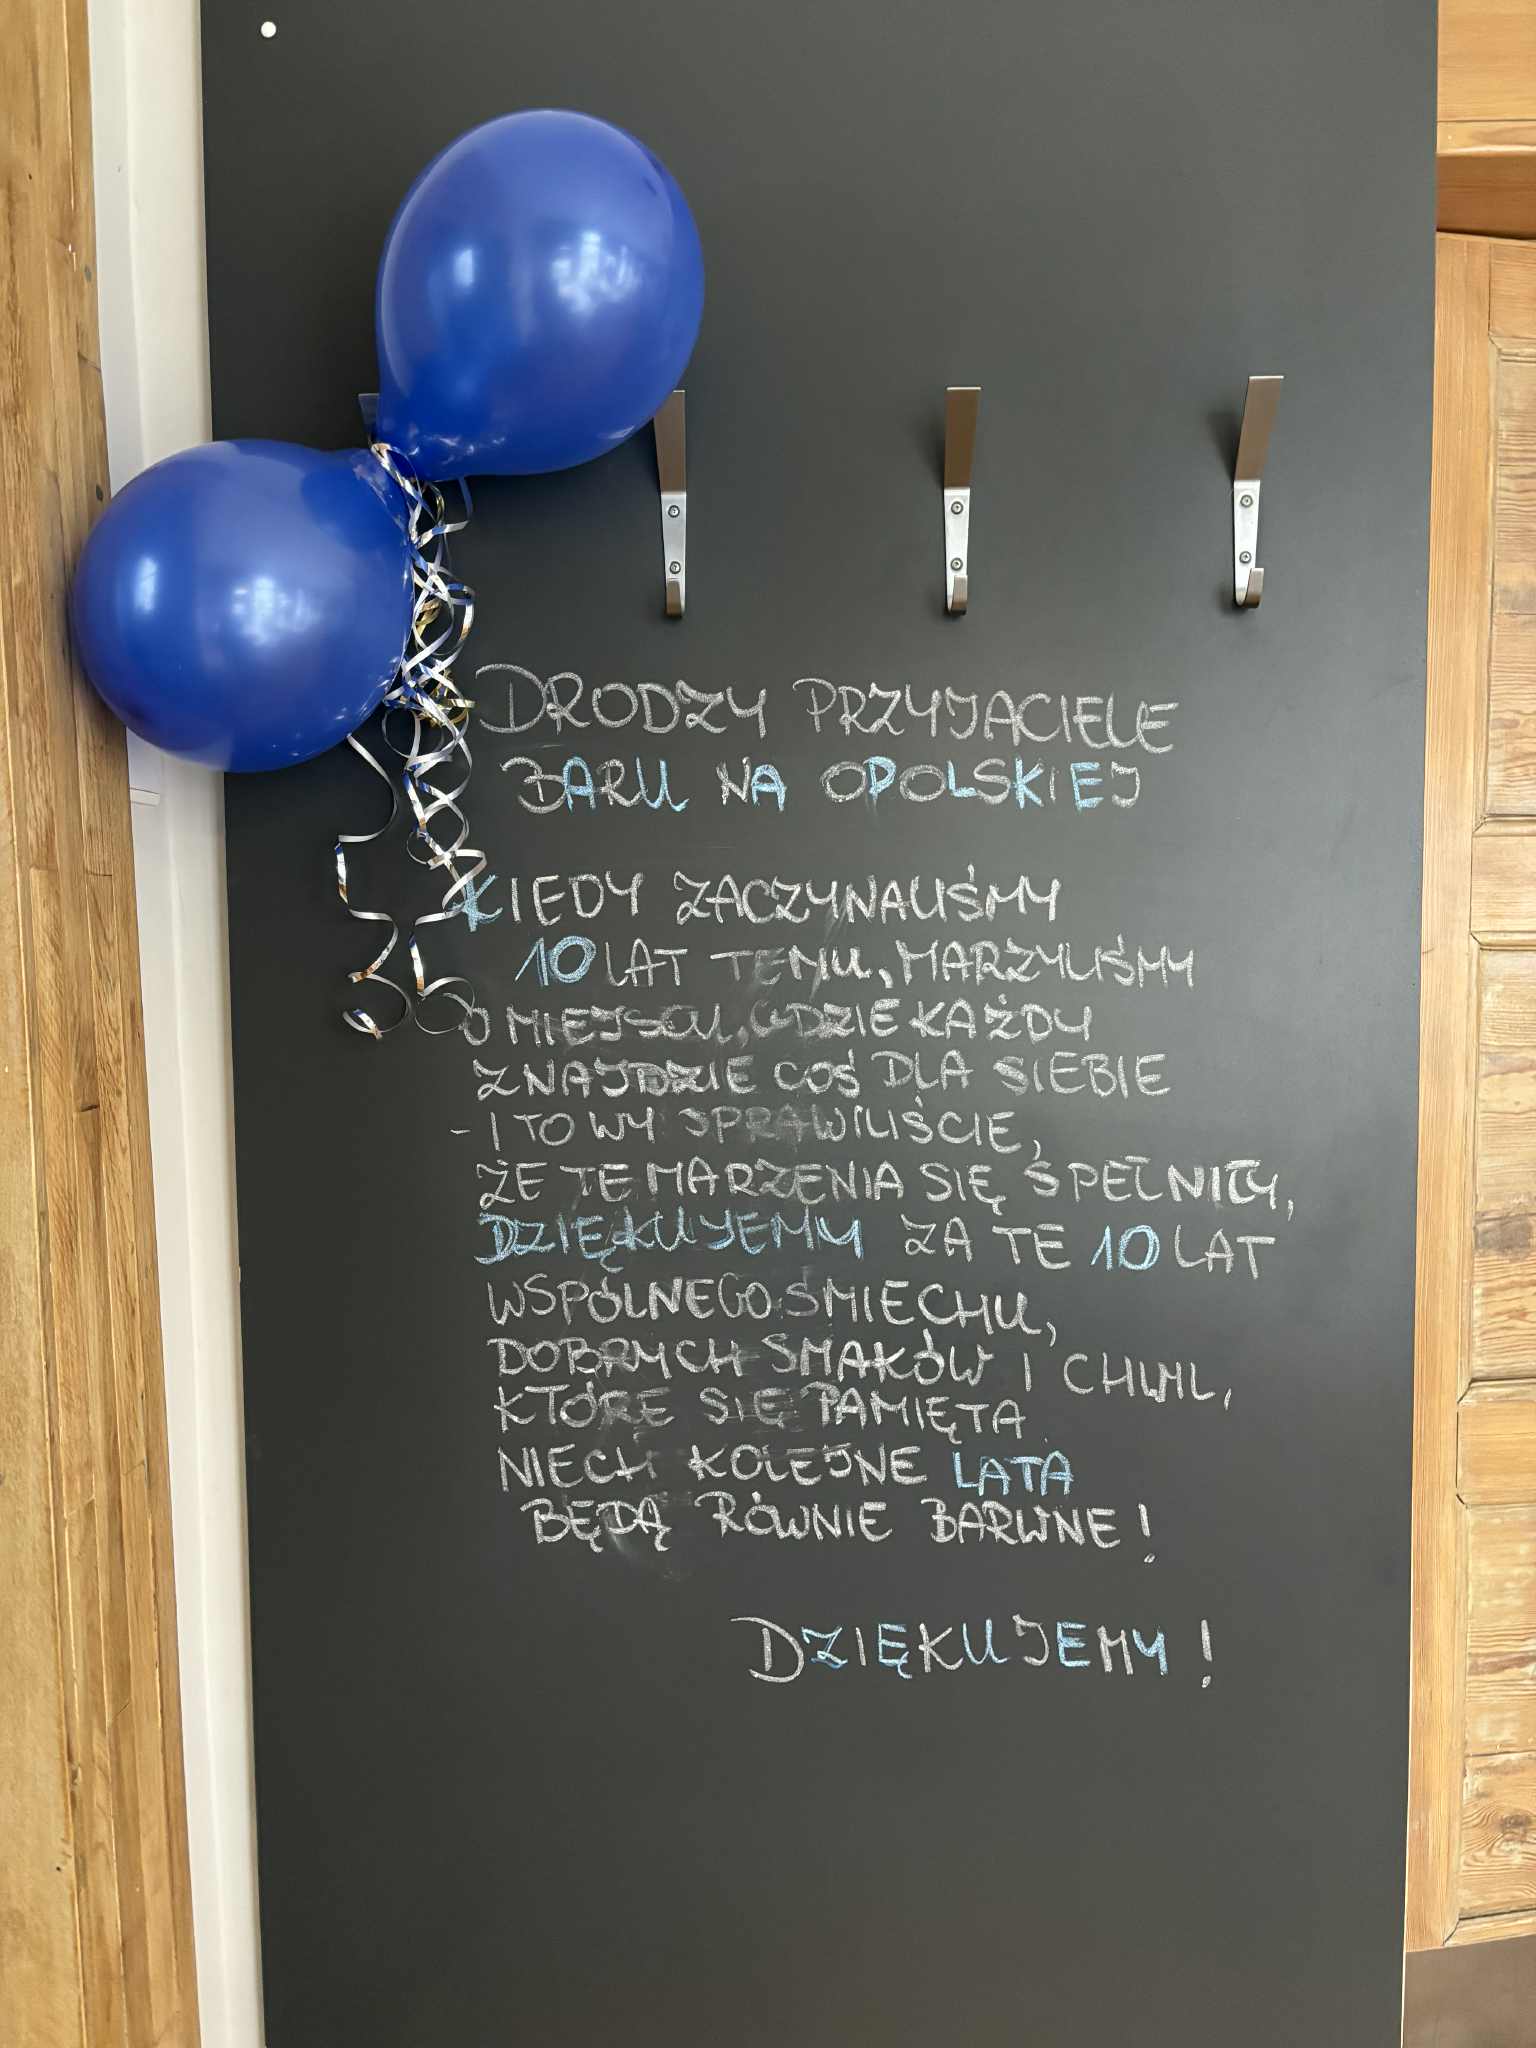 DRODZY PRZYJACIELE
BARU NA OPOLSKIEJ
KIEDY ZACZYNALIŚMY
10 LAT TEMU, MARZYLIŚMY
O MIEJSCU, GDZIE KAŻDY
ZNAJDZIE COŚ DLA SIEBIE
- I TO WY SPRAWILIŚCIE,
ŻE TE MARZENIA SIĘ SPEŁNIŁY,
DZIĘKUJEMY ZA TE 10 LAT
WSPÓLNEGO ŚMIECHU,
DOBRYCH SMAKÓW I CHWIL,
KTÓRE SIĘ PAMIĘTA.
NIECH KOLEJNE LATA
BĘDĄ RÓWNIE BARWNE!
DZIĘKUJEMY!